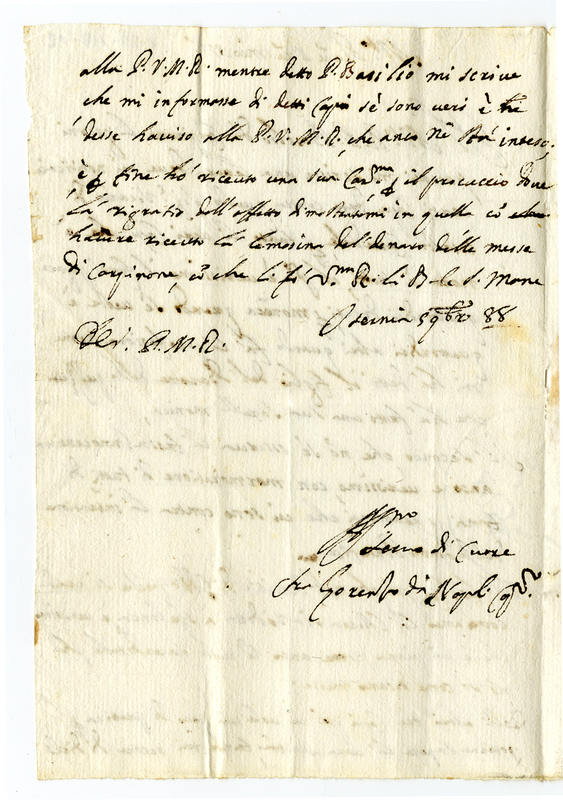 alla P. V. M. R. mentre detto P. Basilio mi scrive
che mi informasse di detti Capi sè sono veri è
desse haviso alla P. V. M. R., che anco nè stà inteso.
è fine hò riceuto una sua Car.ma il procaccio dove
la rigratio dell'affetto dimostratomi in quella cõ
havere riceuto la lemosina del denaro delle messe
di Carpinone, cõ che li fò R. li B. le S. Mane
Isernia 9bre 88
Di V. P. M. R.
Servo di Cuore
fra Lorenzo di Napl.